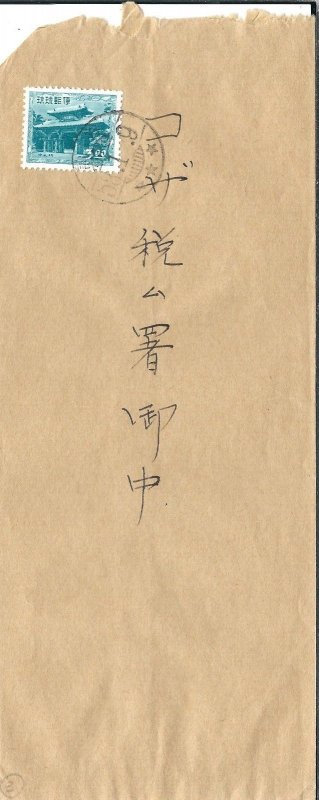 琉球郵便
3.00
コザ税ム署御中
2